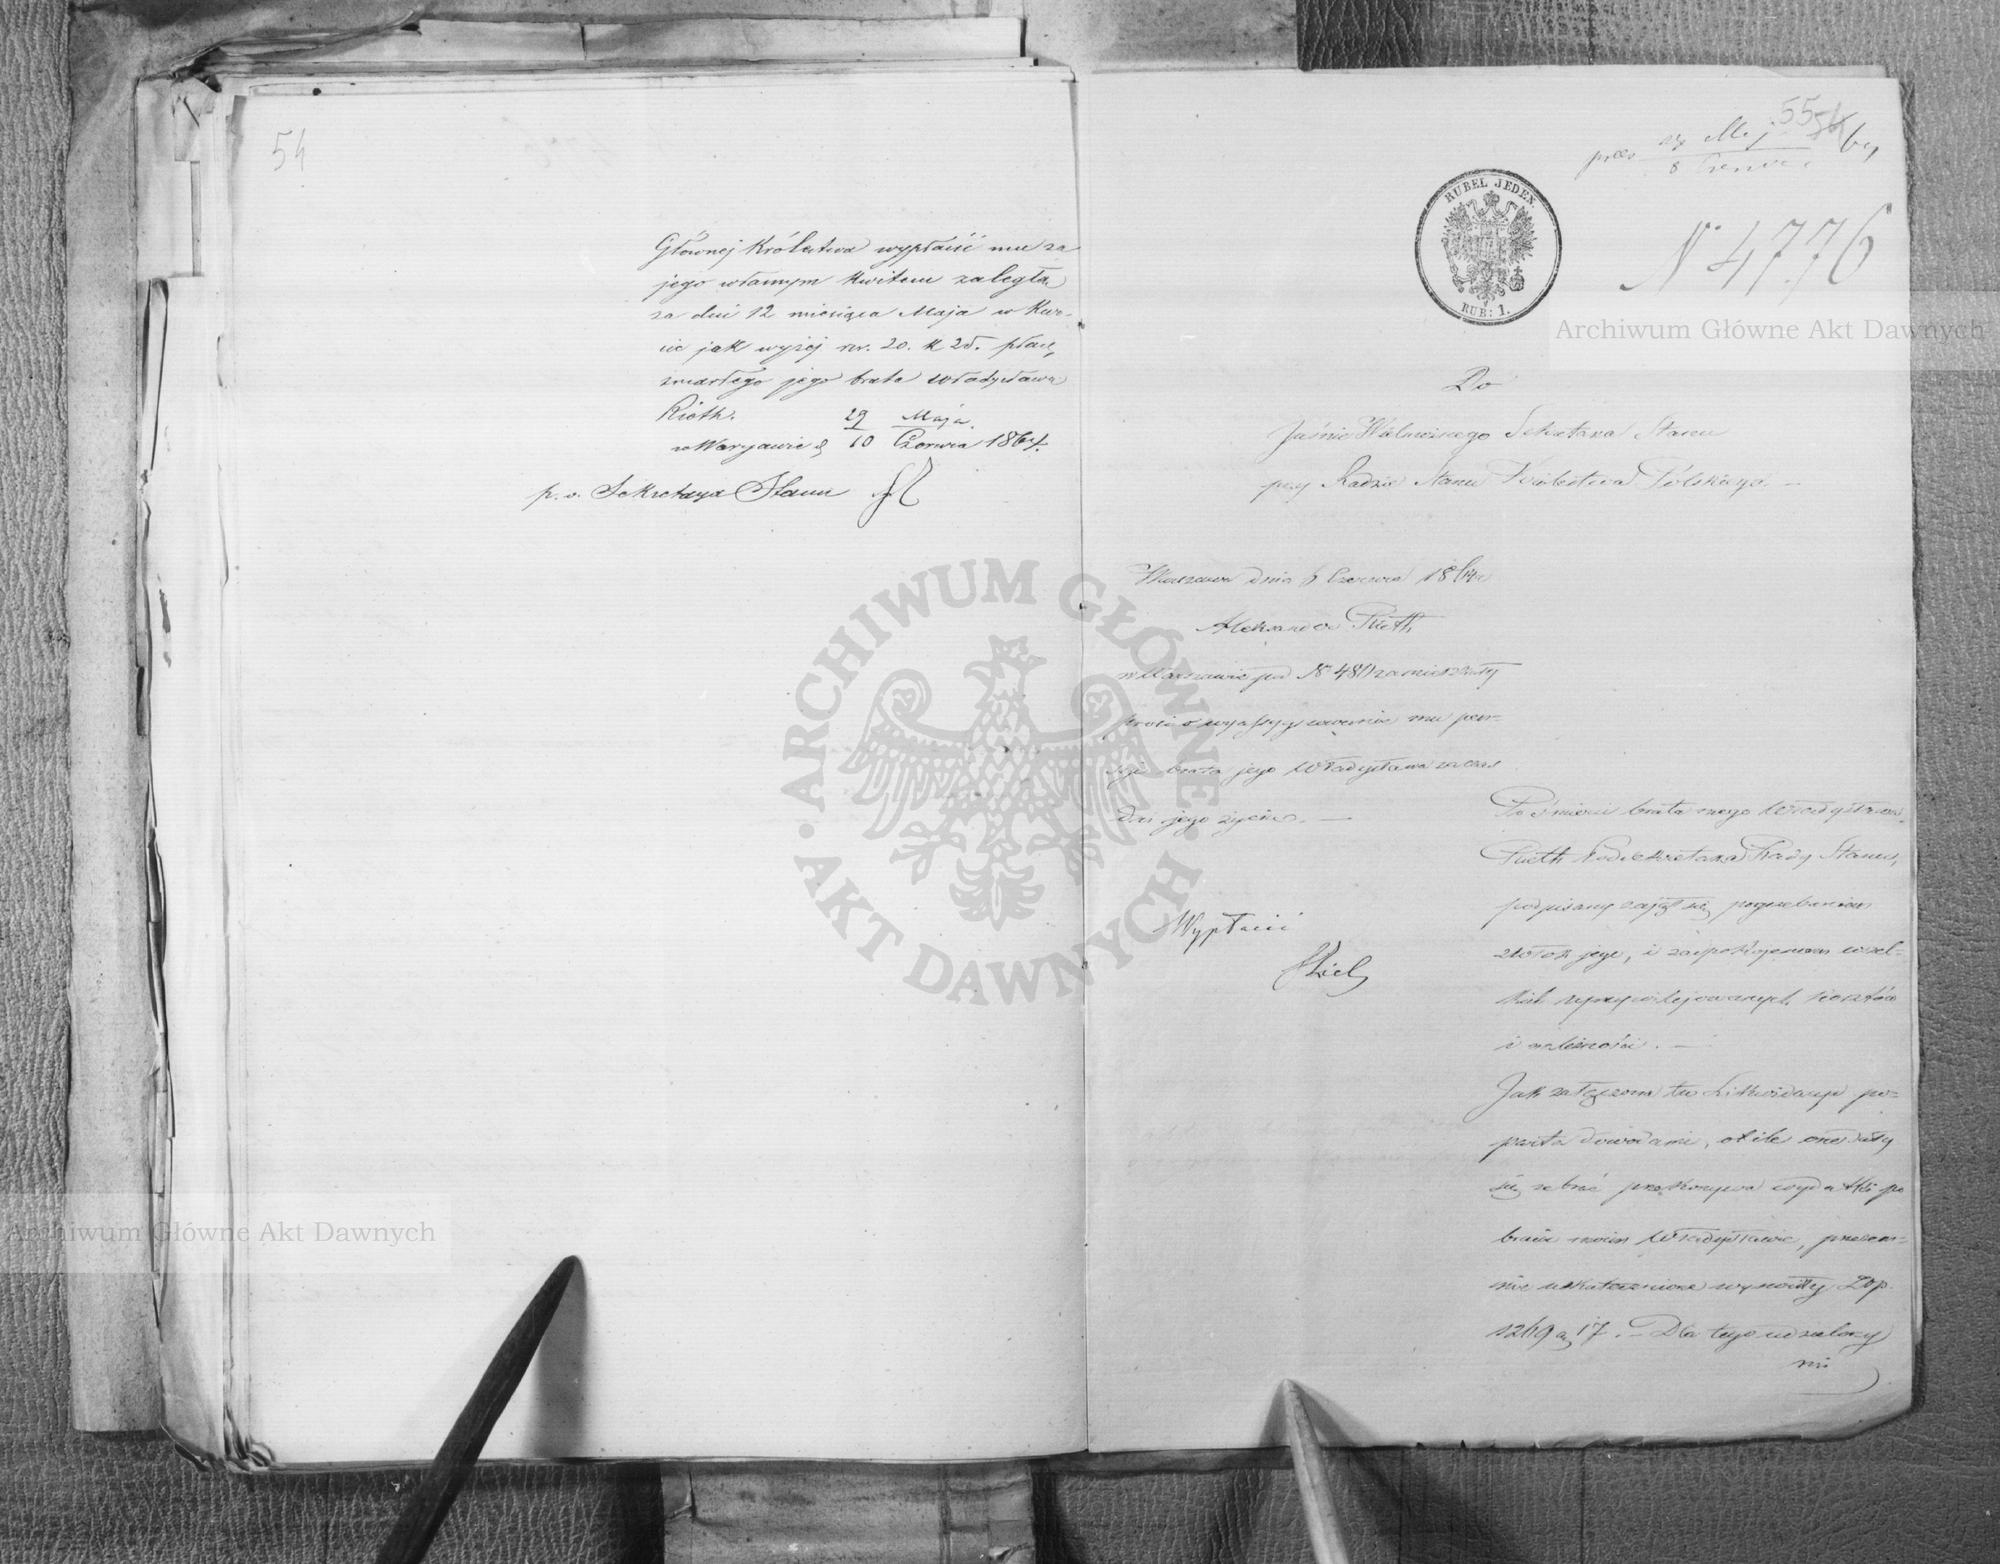 54
Głównej Królestwa wypłacić mu za
jego własnym kwitem zaległą
za dni 12 miesiąca Maja w kwo-
cie jak wyżej rsr. 20. k 25. płacę,
zmarłego jego brata Władysława
Rieth.
w Warszawie d 29 Maja / 10 Czerwca 1864.
p. o. Sekretarza Stanu
55
54
pres 27 Maj / 8 Czerwca 64
RUBEL JEDEN.
RUB: 1.
N 4776
Archiwum Główne Akt Dawnych
Do
Jaśnie Wielmożnego Sekretarza Stanu
przy Radzie Stanu Królestwa Polskiego. –
Warszawa dnia 6 Czerwca 1864 r
Aleksander Rieth
w Warszawie pod N zamieszkały
prosi o wyasygnowanie mu pen-
syi brata jego Władysława za czas
dni jego życia. –
Wypłacić
Po śmierci brata mego Władysława
Rieth Podsekretarza Rady Stanu,
podpisany zajął się pogrzebaniem
zwłok jego, i zaspokojeniem wszel-
kich uprzywilejowanych kosztów
i należności. –
Jak załączona tu Likwidacya po-
parta dowodami, o ile one dały
się zebrać przekonywa wydatki po
bracie moim Władysławie, przeze-
mnie uskutecznione wynosiły Złp.
1269 gr 17. – Dla tego udzielony
mi
ARCHIWUM GŁÓWNE · AKT DAWNYCH ·
Archiwum Główne Akt Dawnych